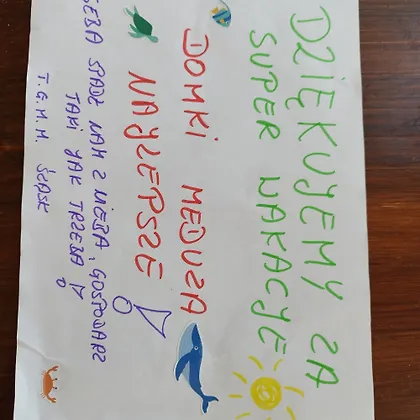 DZIĘKUJEMY ZA
SUPER WAKACJE
DOMKI MEDUZA
NAJLEPSZE!
SEBA SPADŁ NAM Z NIEBA, GOSPODARZ
TAKI JAK TRZEBA!
T.G.M.M.